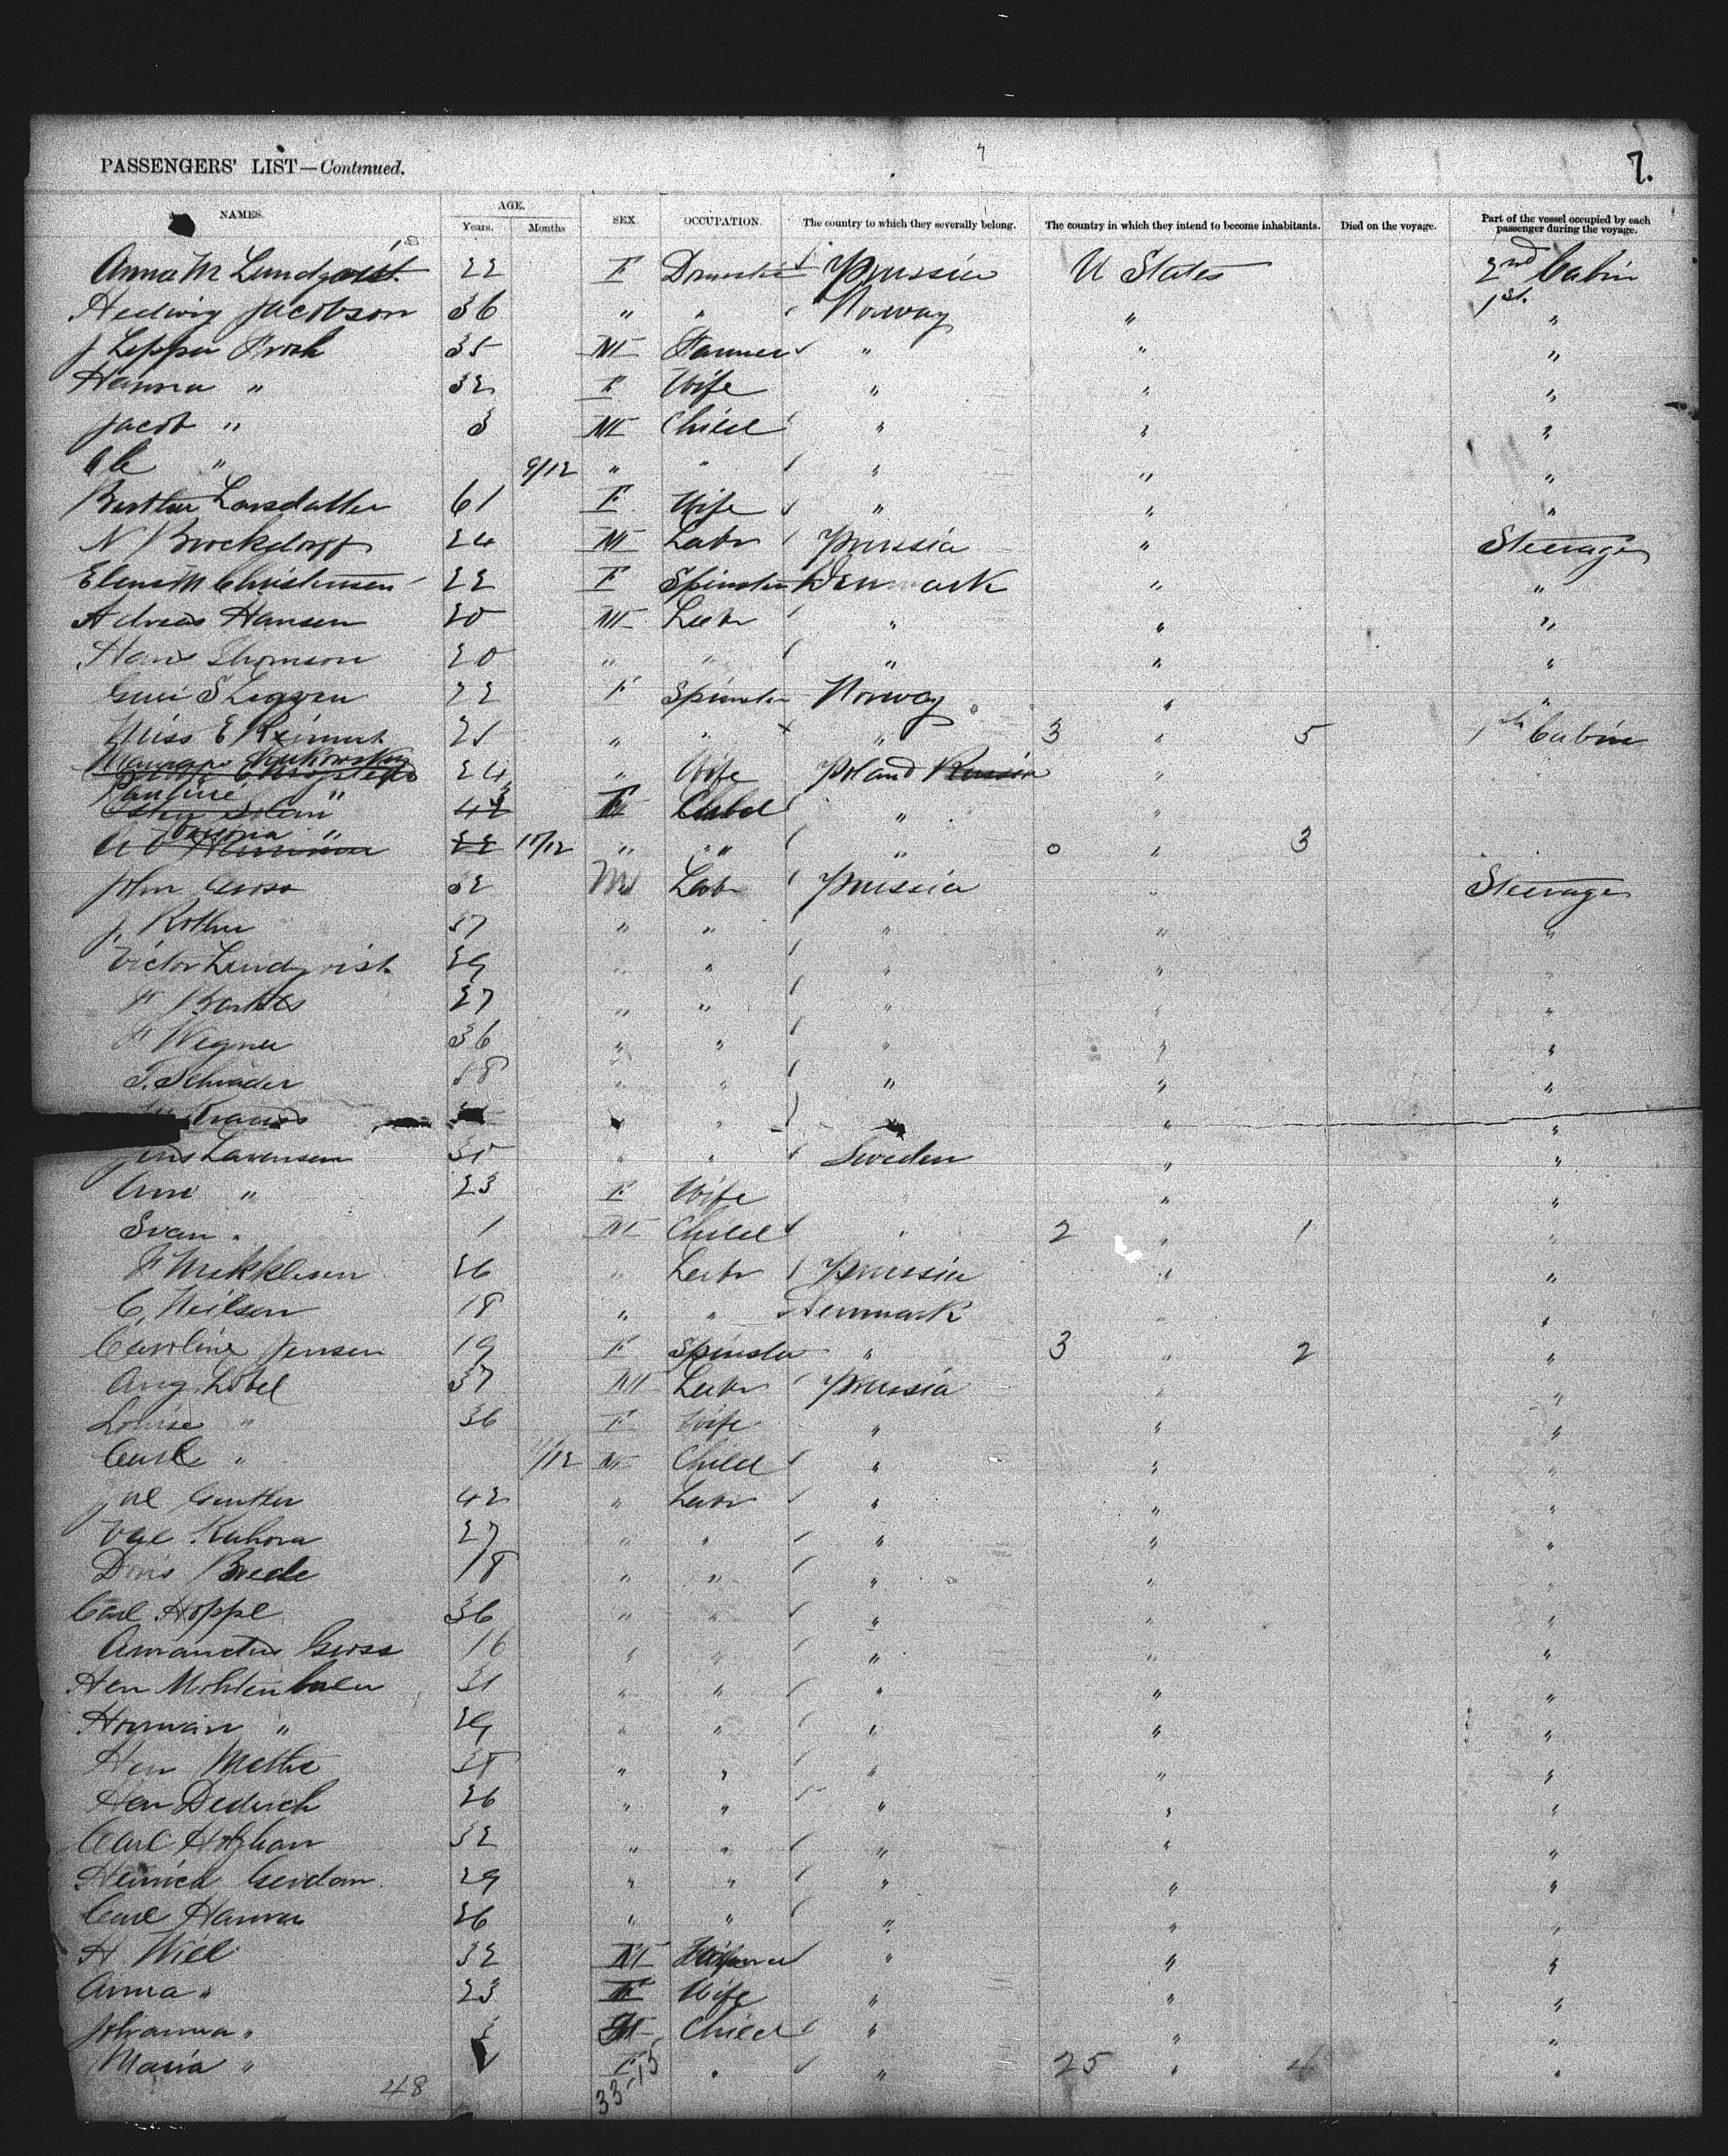 7
7.
PASSENGERS' LIST—Continued.
NAMES. AGE. Years. Months SEX. OCCUPATION. The country to which they severally belong. The country in which they intend to become inhabitants. Died on the voyage. Part of the vessel occupied by each passenger during the voyage.
Anna M Lundqvist 22 F Domestic Prussia U States 2nd Cabin
Hedwig Jacobson 36 " " Norway " 1st "
J Leppen 35 M Farmer " " "
Hanna " 32 F Wife " " "
Jacob " 3 M Child " " "
Ole " 9/12 " " " " "
Berthe Larsdatter 61 F Wife " " "
N Brockdorff 24 M Labr Prussia " Steerage
Elena M Christensen 22 F Spinster Denmark " "
Adreas Hansen 20 M Labr " " "
Hans Thomson 20 " " " " "
22 F Spinster Norway " "
Miss E Reimert 21 " " " 3 " 5 1st Cabin
24 " Wife Poland Russia "
Pauline " 3 F Child " "
" 10/12 " " " 0 " 3
John 32 M Labr Prussia " Steerage
J. Rothe 37 " " " " "
Victor Lindqvist 29 " " " " "
F Bartels 27 " " " " "
F Wegner 36 " " " " "
T. Schrader 18 " " " " "
Krauss " " " "
Jens Lavensen 35 " " Sweden " "
Ane " 23 F Wife " "
Svan " 1 M Child " 2 " 1 "
F Mekklesen 26 " Labr Prussia " "
C. Neilsen 18 " " Denmark " "
Caroline Jensen 19 F Spinster " 3 " 2 "
Aug. Lobel 37 M Labr Prussia " "
Louise " 36 F Wife " " "
Carl " 11/12 M Child " " "
Gunther 42 " Labr " " "
27 " " " " "
Doris Brede 18 " " " " "
Carl Hoppe 36 " " " " "
Amandus Gross 16 " " " " "
Hen 31 " " " " "
Herman " 29 " " " " "
Hen Mette 35 " " " " "
Hen Dederich 26 " " " " "
Carl 32 " " " " "
Heinrich 29 " " " " "
Carl 26 " " " " "
H Wiel 32 M " " "
Anna " 23 F Wife " " "
Johanna " 3 Child " " "
Maria " F " " 25 " 4 "
48 33-15